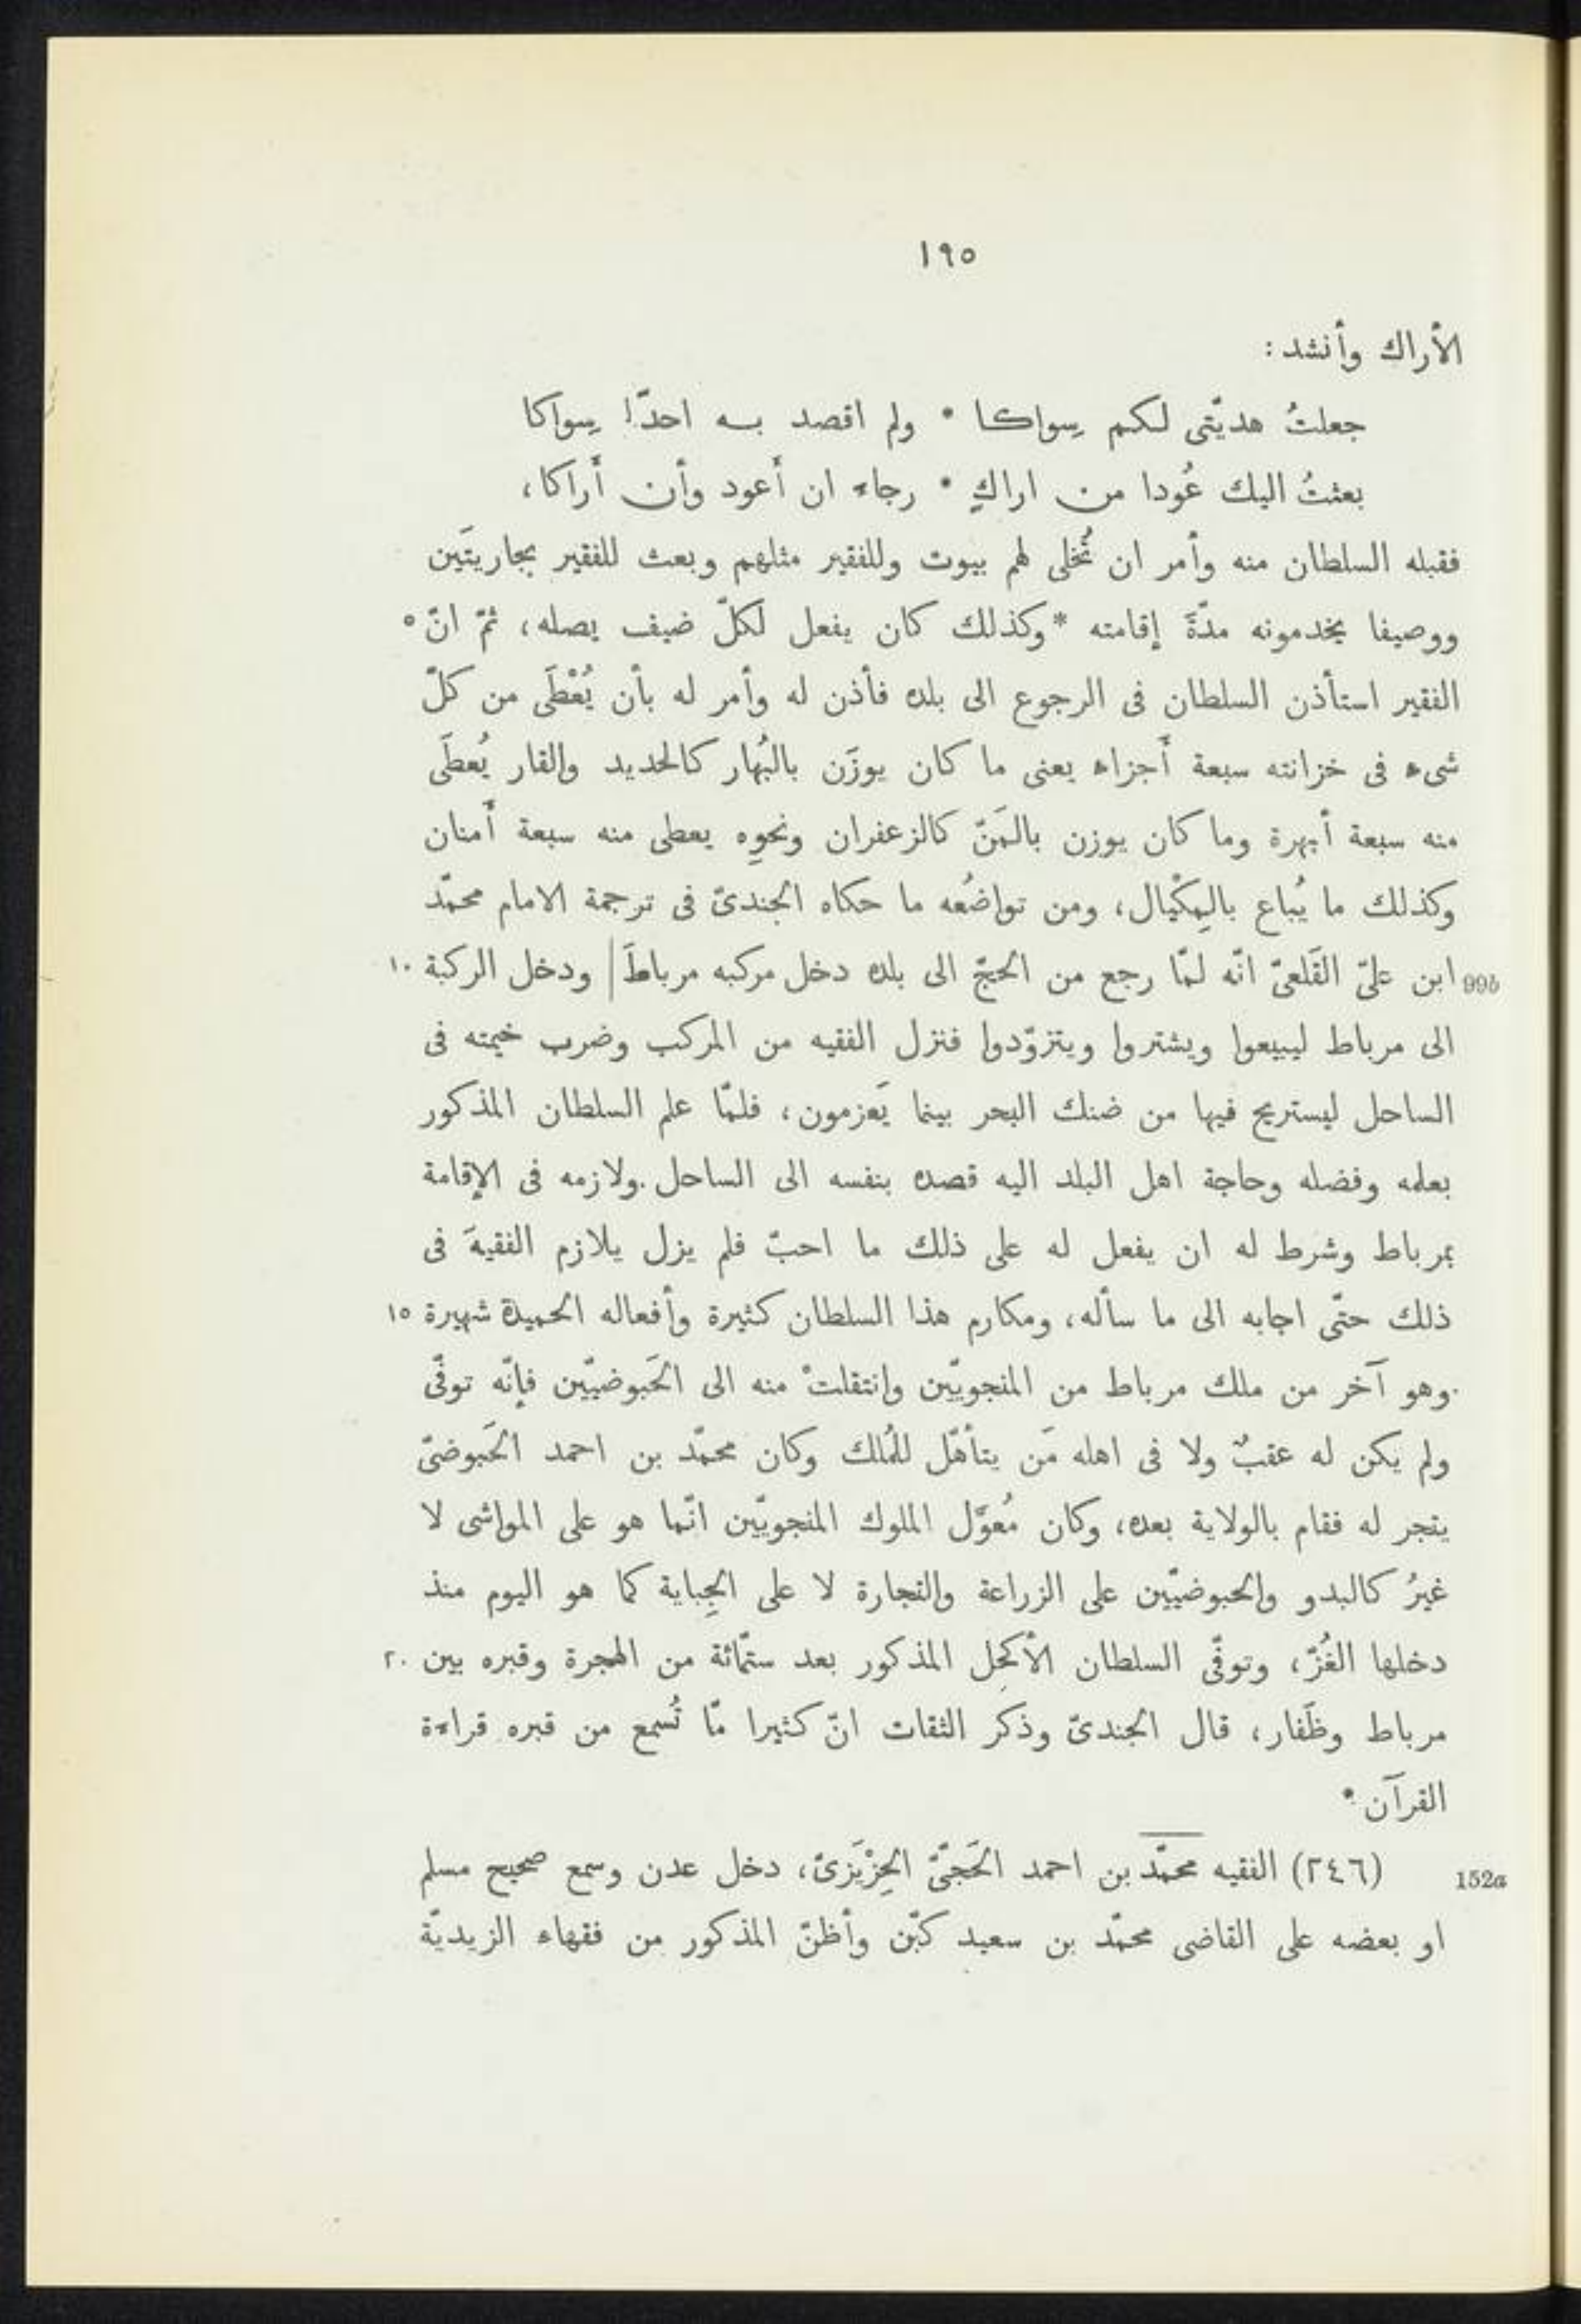 ١٩٥
الأراك وأنشد :
جعلتُ هديّتى لكم سِواكا * ولم اقصد به احدًّا سِواكا
بعثتُ اليك عُودا من اراكٍ * رجاء ان أعود وأن أراكا،
فقبله السلطان منه وأمر ان تُخلى لهم بيوت وللفقير مثلهم وبعث للفقير بجاريتَين
ووصيفا يخدمونه مدّةَ إقامته *وكذلك كان يفعل لكلّ ضيف يصله، ثمّ انّ ٥
الفقير استأذن السلطان فى الرجوع الى بلده فأذن له وأمر له بأن يُعْطَى من كلّ
شىء فى خزانته سبعة أجزاء يعنى ما كان يوزَن بالبُهار كالحديد والقار يُعطَى
منه سبعة أبهرة وما كان يوزن بالمَنّ كالزعفران ونحوِه يعطى منه سبعة أمنان
وكذلك ما يُباع بالمِكْيال، ومن تواضُعه ما حكاه الجندىّ فى ترجمة الامام محمّد
99b ابن علىّ القَلعىّ انّه لمّا رجع من الحجّ الى بلده دخل مركبه مرباطَ| ودخل الركبة ١٠
الى مرباط ليبيعوا ويشتروا ويتزوّدوا فنزل الفقيه من المركب وضرب خيمته فى
الساحل ليستريح فيها من ضنك البحر بينما يَعزمون، فلمّا علم السلطان المذكور
بعلمه وفضله وحاجة اهل البلد اليه قصده بنفسه الى الساحل .ولازمه فى الإقامة
بمرباط وشرط له ان يفعل له على ذلك ما احبّ فلم يزل يلازم الفقيهَ فى
ذلك حتّى اجابه الى ما سأله، ومكارم هذا السلطان كثيرة وأفعاله الحميدة شهيرة ١٥
.وهو آخر من ملك مرباط من المنجويّين وانتقلتْ منه الى الحَبوضيّين فإنّه توفّى
ولم يكن له عقبٌ ولا فى اهله مَن يتأهّل للمُلك وكان محمّد بن احمد الحَبوضىّ
يتجر له فقام بالولاية بعده، وكان مُعوَّل الملوك المنجويّين انّما هو على المواشى لا
غيرُ كالبدو والحبوضيّين على الزراعة والتجارة لا على الجِباية كما هو اليوم منذ
دخلها الغُزّ، وتوفّى السلطان الأكحل المذكور بعد ستّمائة من الهجرة وقبره بين ٢٠
مرباط وظَفار، قال الجندىّ وذكر الثقات انّ كثيرا مّا تُسمع من قبره قراءة
القرآن *
152a (٢٤٦) الفقيه محمّد بن احمد الحَجّىّ الحِزْيَزىّ، دخل عدن وسمع صحيح مسلم
او بعضه على القاضى محمّد بن سعيد كبّن وأظنّ المذكور من فقهاء الزيديّة